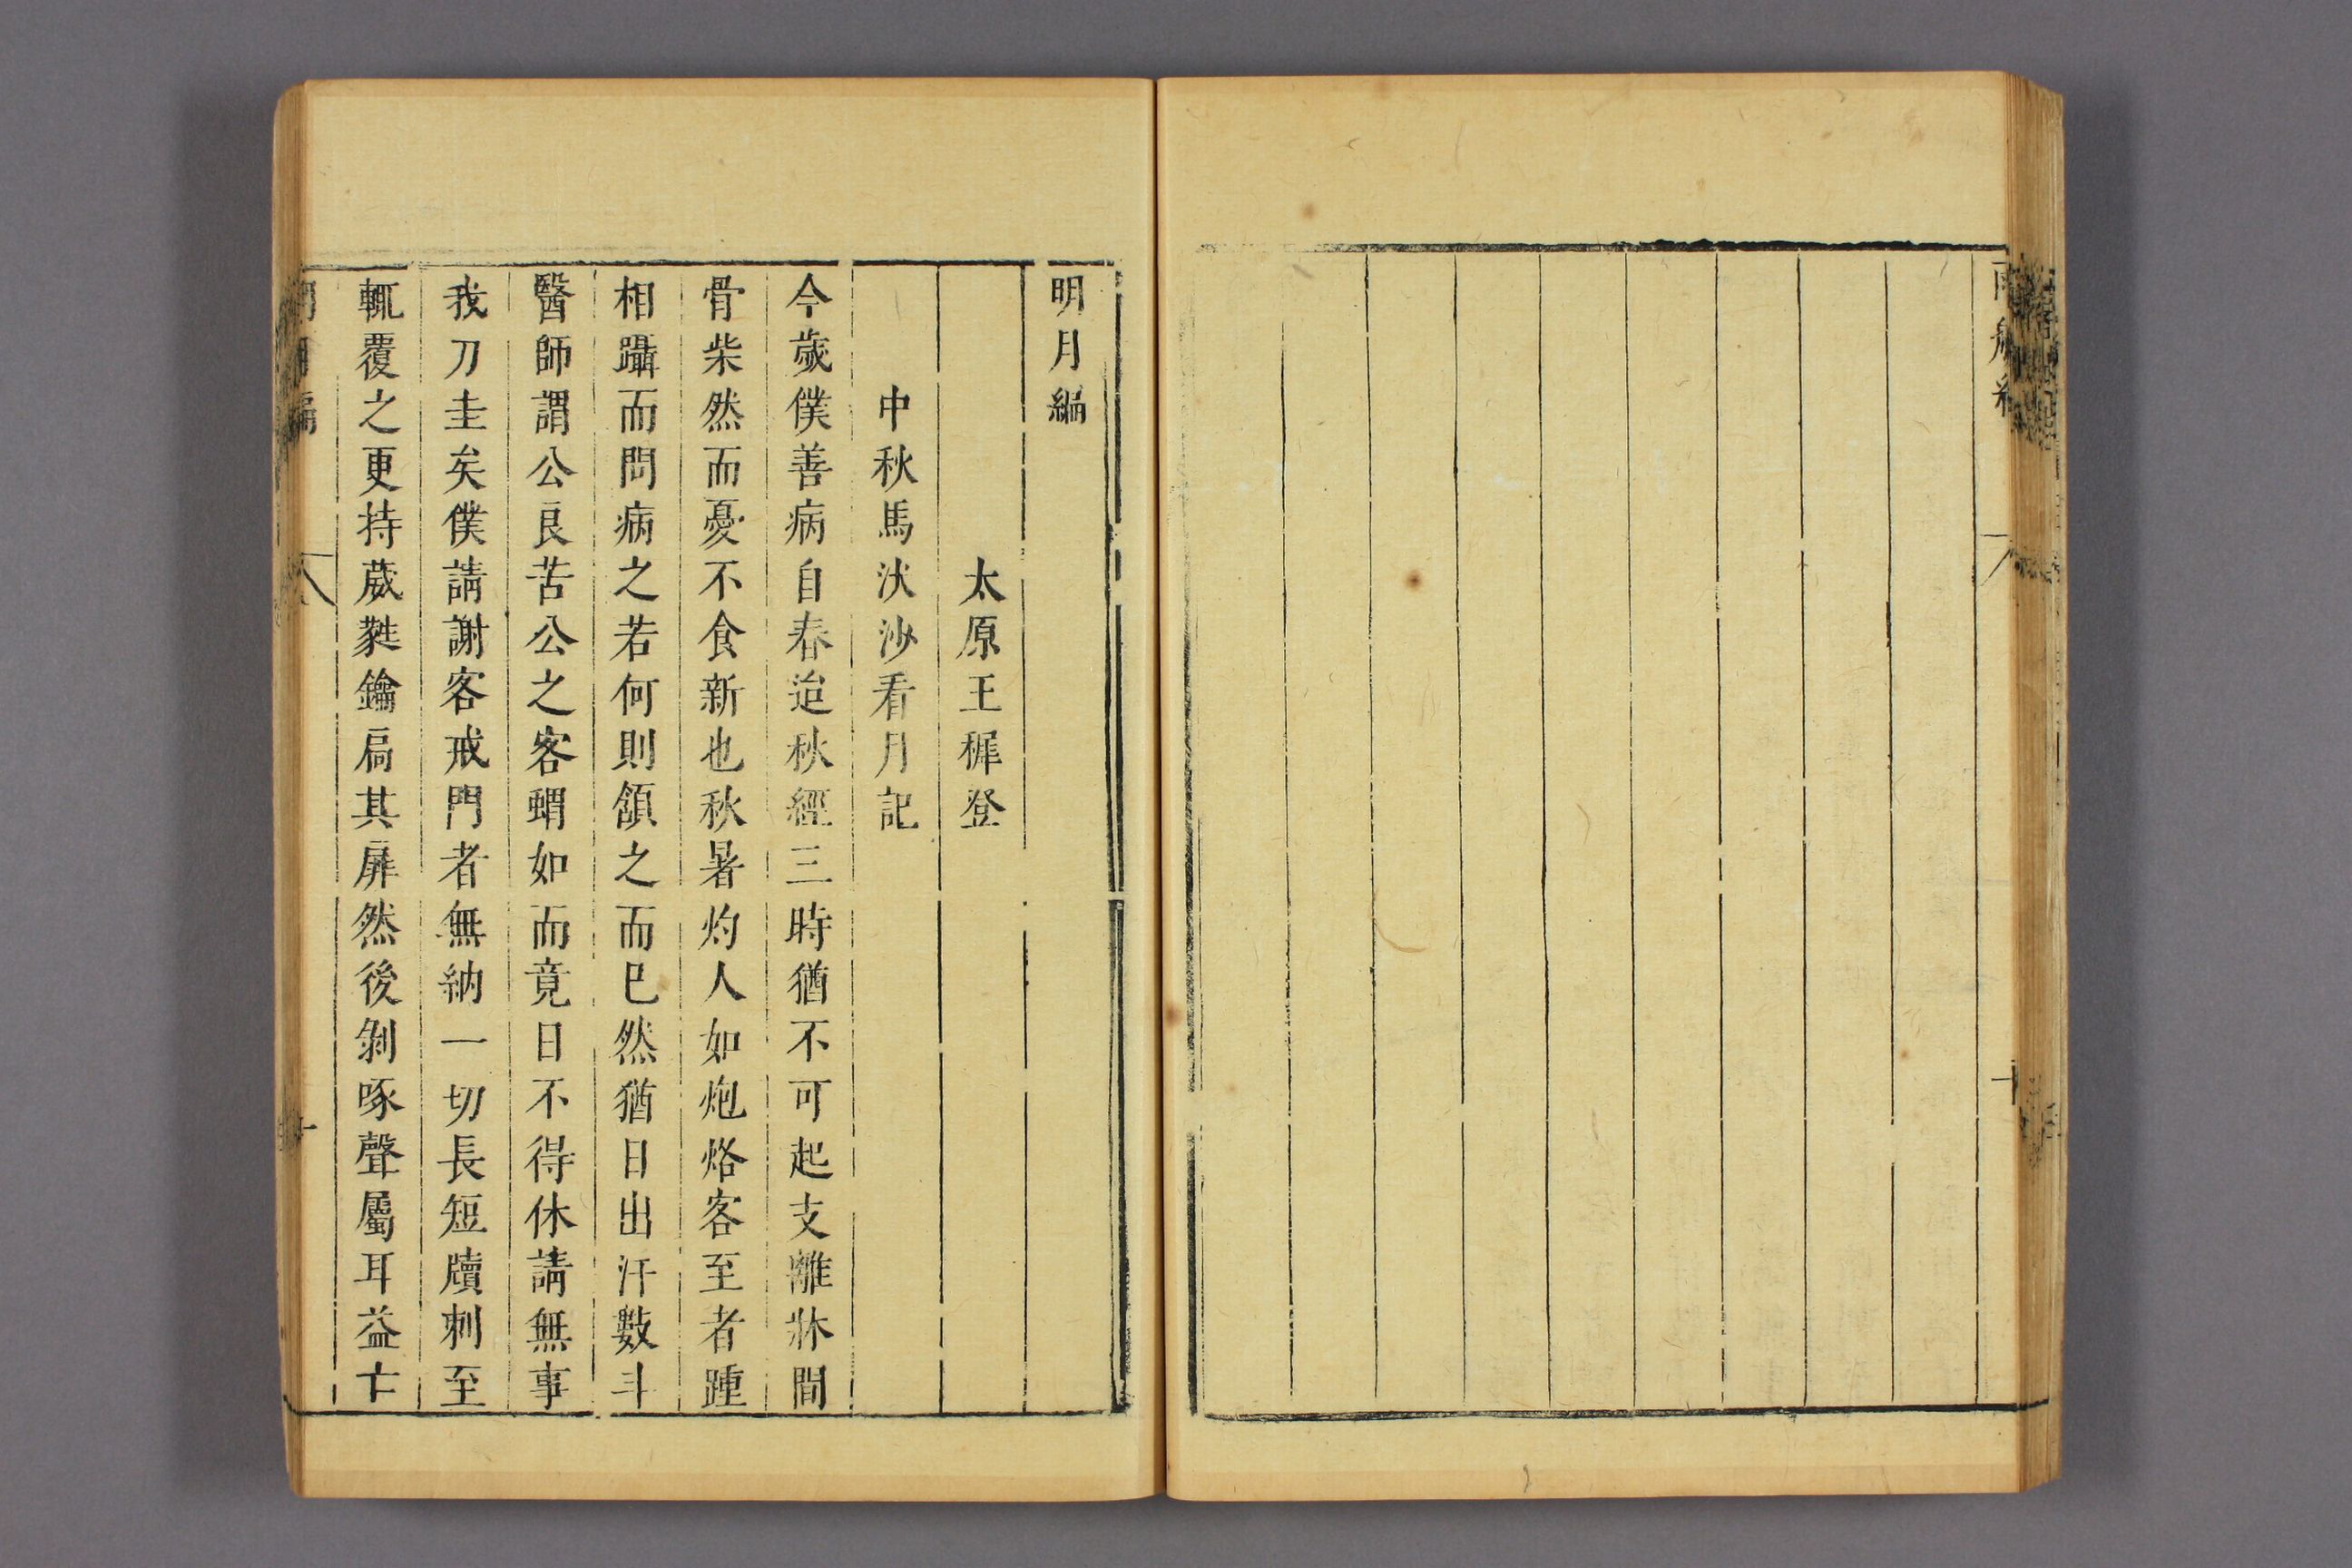 明月編
太原王穉登
中秋馬汏沙看月記
今歲僕善病自春迨秋經三時猶不可起支離牀間
骨柴然而憂不食新也秋暑灼人如炮烙客至者踵
相躡而問病之若何則頷之而已然猶日出汗數斗
醫師謂公良苦公之客蝟如而竟日不得休請無事
我刀圭矣僕請謝客戒門者無納一切長短牘刺至
輒覆之更持葳蕤鑰扃其扉然後剝啄聲屬耳益十